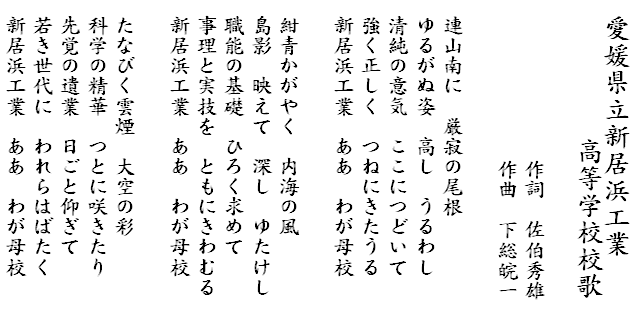 愛媛県立新居浜工業
高等学校校歌
作詞　佐伯秀雄
作曲　下総皖一
連山南に　厳寂の尾根
ゆるがぬ姿　高し　うるわし
清純の意気　ここにつどいて
強く正しく　つねにきたうる
新居浜工業　ああ　わが母校
紺青かがやく　内海の風
島影　映えて　深し　ゆたけし
職能の基礎　ひろく求めて
事理と実技を　ともにきわむる
新居浜工業　ああ　わが母校
たなびく雲煙　大空の彩
科学の精華　つとに咲きたり
先覚の遺業　日ごと仰ぎて
若き世代に　われらはばたく
新居浜工業　ああ　わが母校